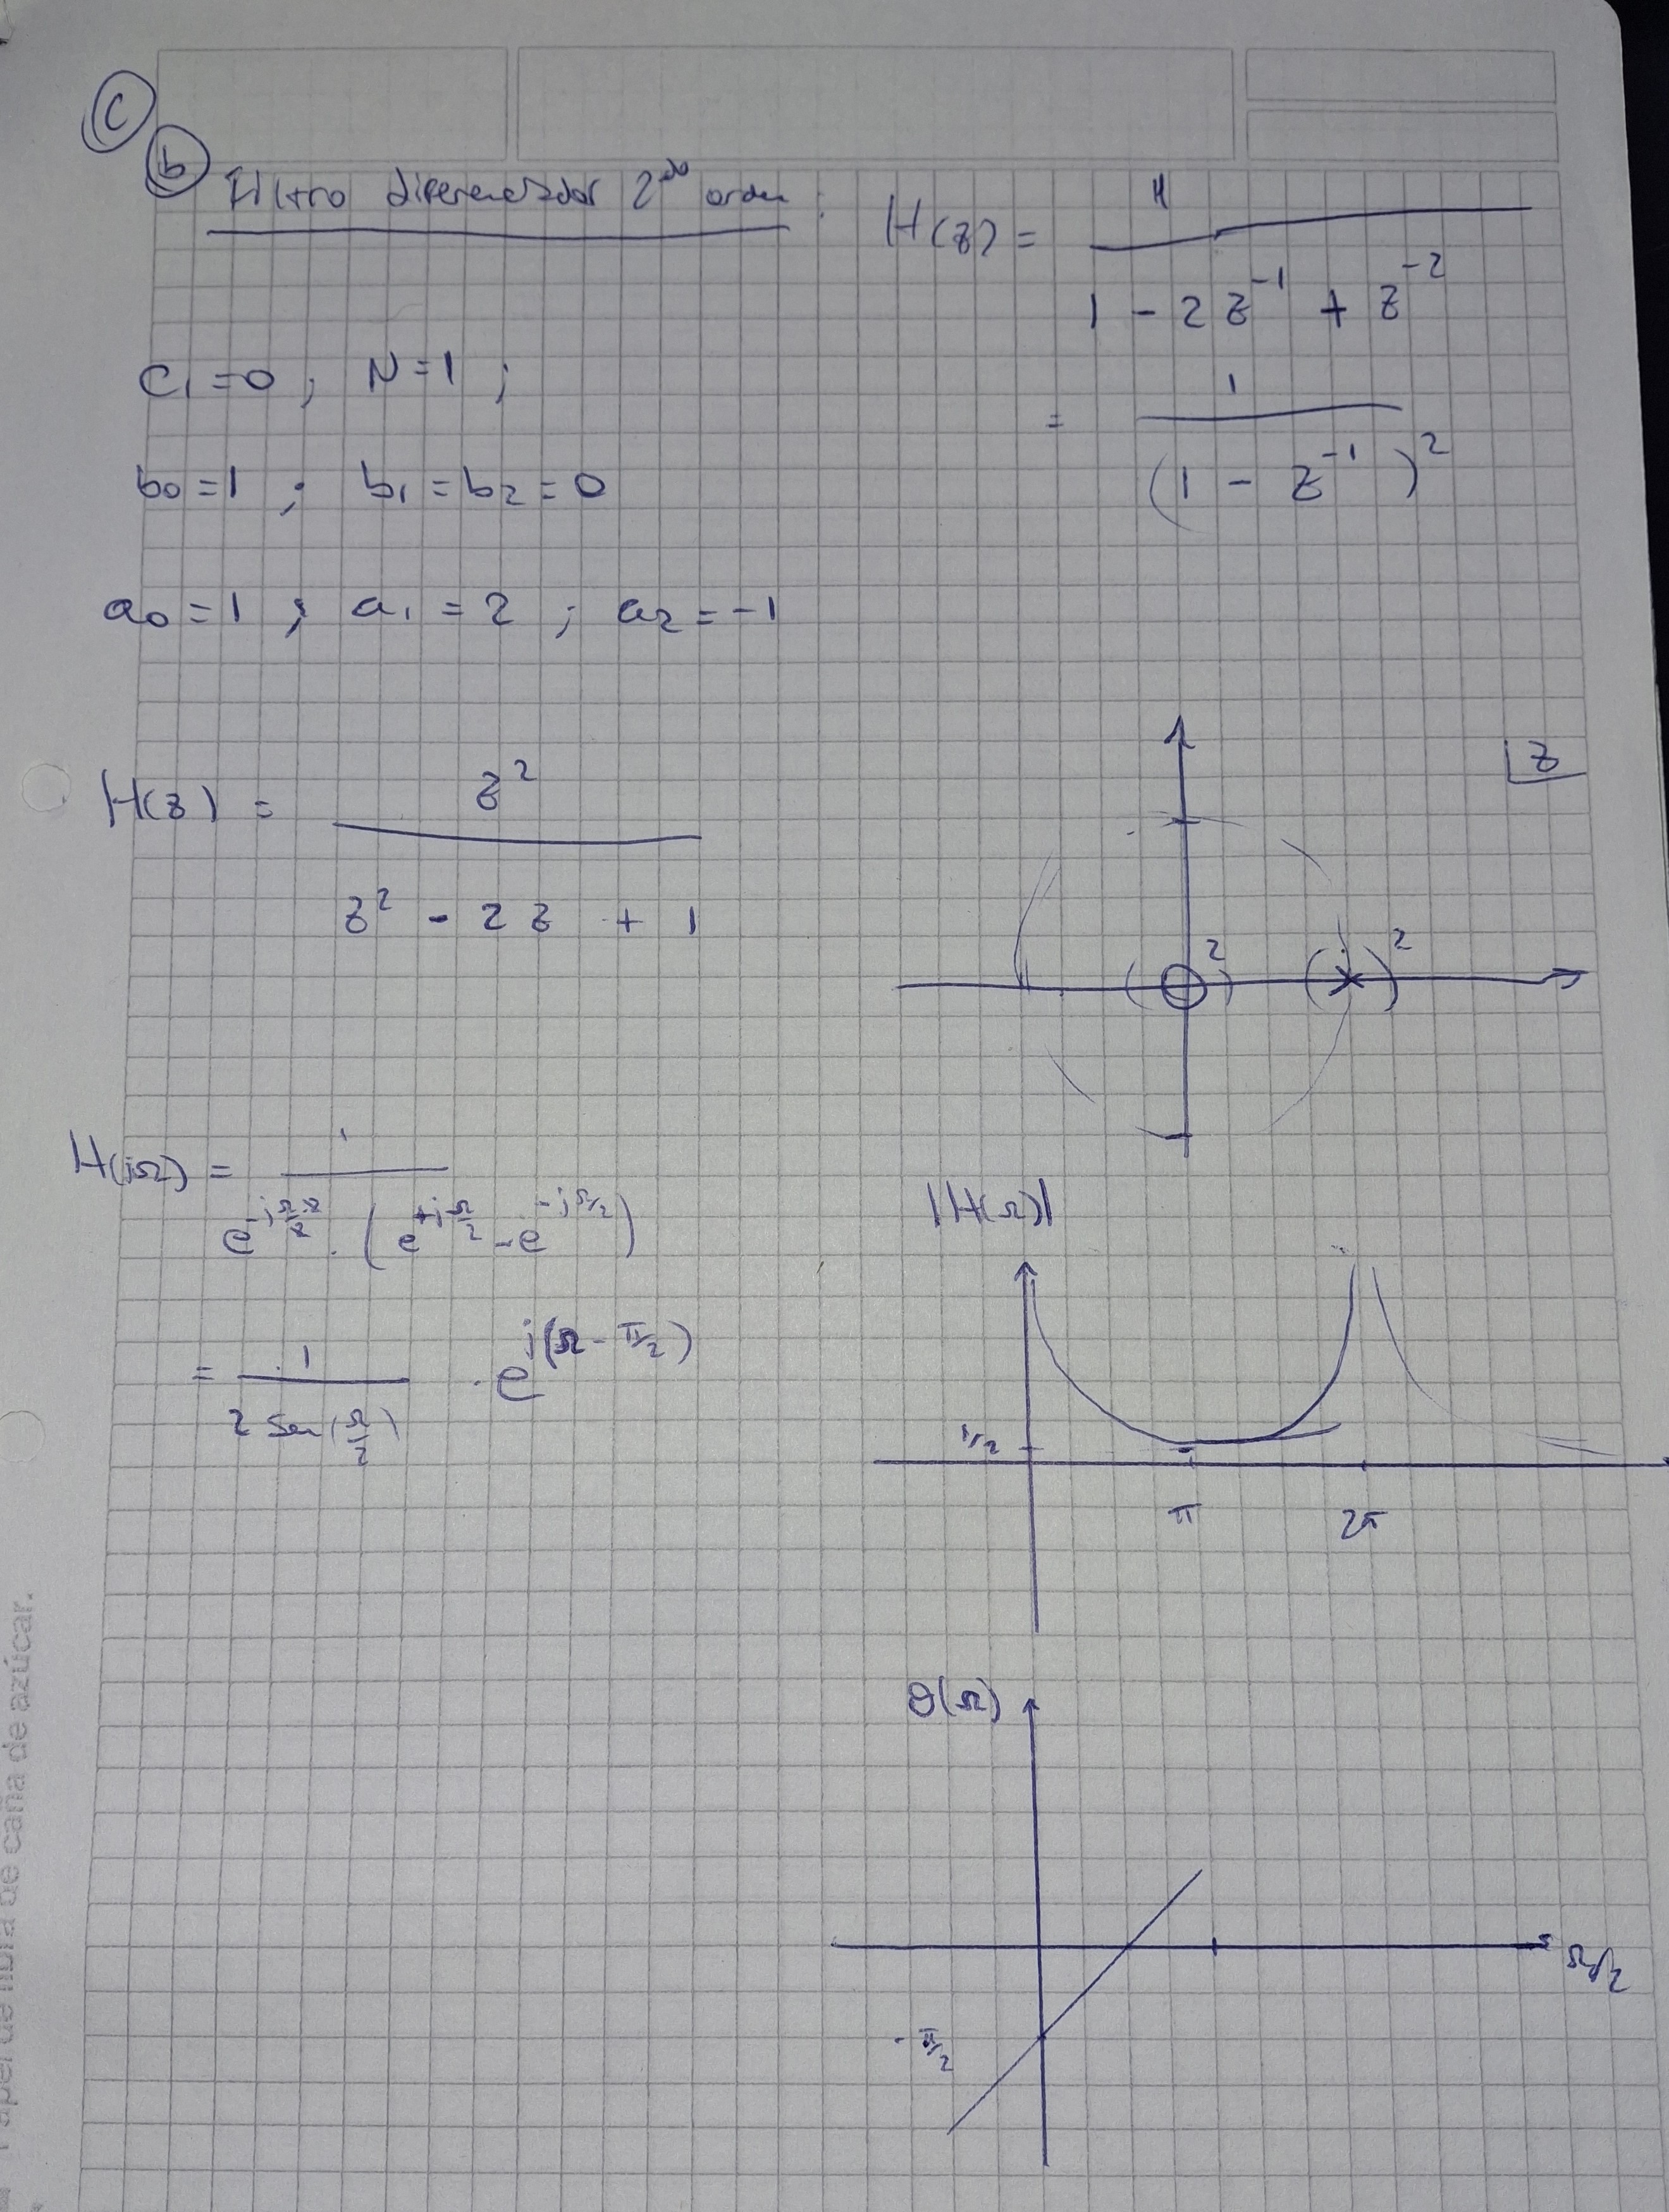 C
b Filtro diferenciador 2do orden :
H(z) = 1 / (1 - 2z^-1 + z^-2)
C1 = 0 ; N = 1 ;
= 1 / (1 - z^-1)^2
b0 = 1 ; b1 = b2 = 0
a0 = 1 ; a1 = 2 ; a2 = -1
z
H(z) = z^2 / (z^2 - 2z + 1)
( )^2 ( )^2
H(jΩ) = 1 / (e^(-jΩ/2·2) · (e^(+jΩ/2) - e^(-jΩ/2)))
|H(Ω)|
= 1 / (2 Sen(Ω/2)) · e^(j(Ω - π/2))
1/2
π 2π
θ(Ω)
Ω/2
-π/2
Papel de fibra de caña de azúcar.